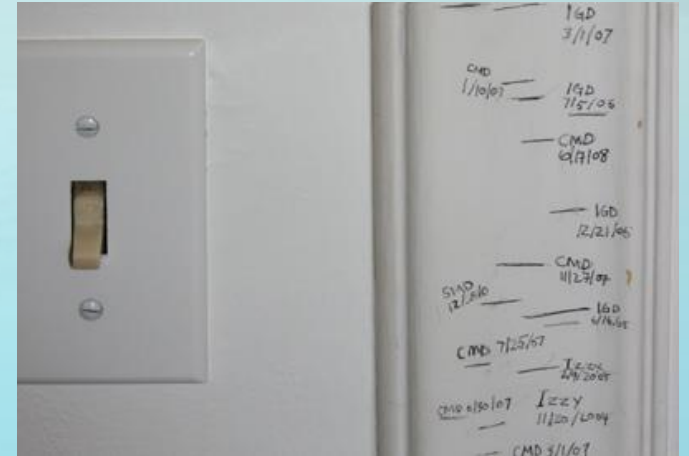 IGD
3/1/07
CMD
1/10/07
IGD
7/5/06
CMD
6/17/08
IGD
12/21/05
CMD
11/27/07
SMD
IGD
CMD 7/25/07
Izzy
CMD 6/30/07
Izzy
11/20/2004
CMD 5/1/07